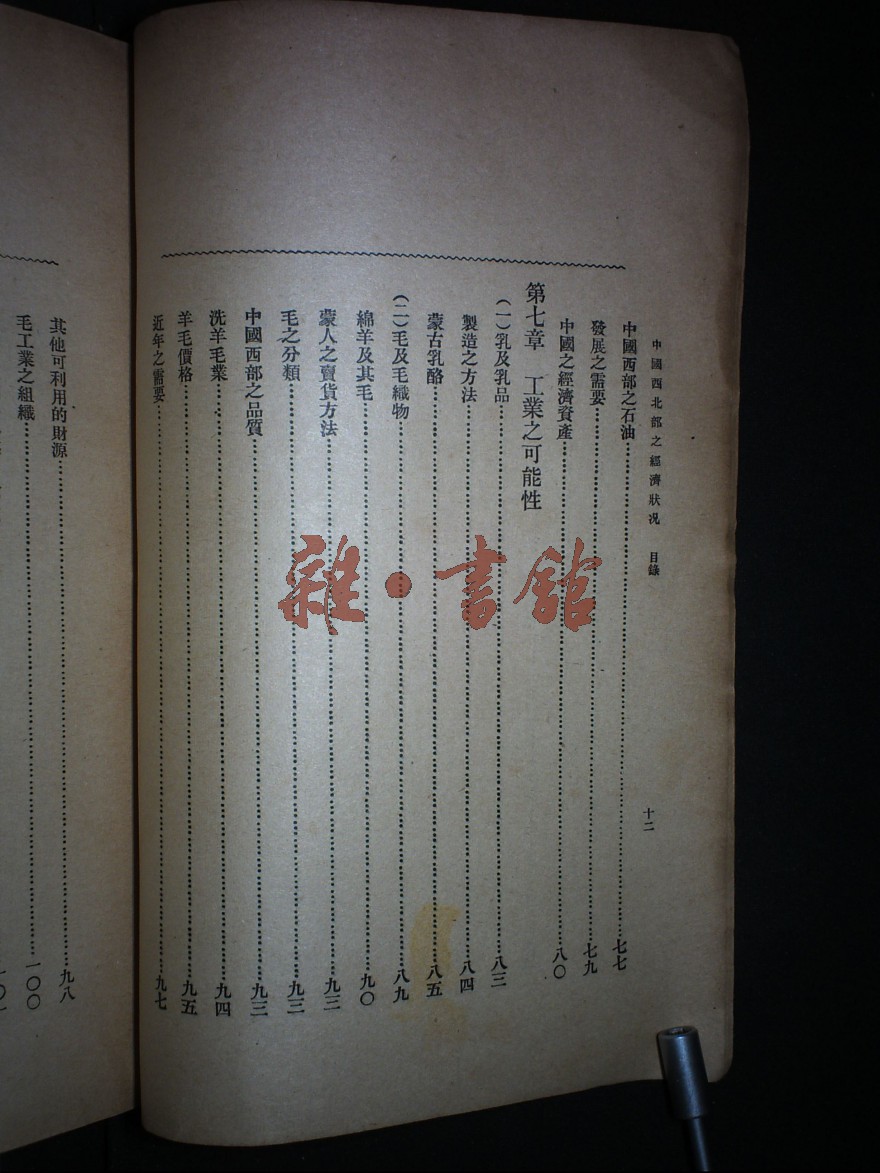 中國西北部之經濟狀況　目錄　十二
中國西部之石油……七七
發展之需要……七九
中國之經濟資產……八〇
第七章　工業之可能性
(一)乳及乳品……八三
製造之方法……八四
蒙古乳酪……八五
(二)毛及毛織物……八九
綿羊及其毛……九〇
蒙人之賣貨方法……九三
毛之分類……九三
中國西部之品質……九三
洗羊毛業……九四
羊毛價格……九五
近年之需要……九七
其他可利用的財源……九八
毛工業之組織……一〇〇
雜·書館